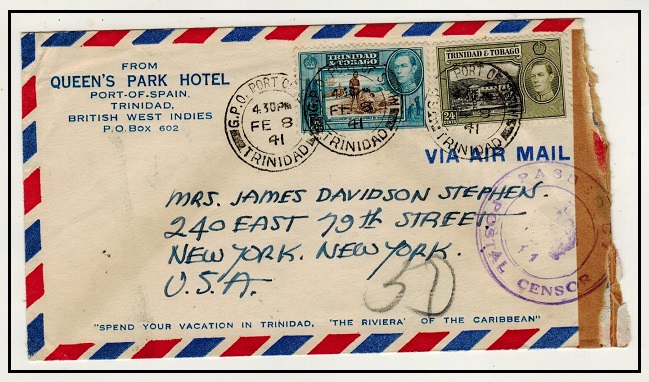 FROM
QUEEN'S PARK HOTEL
PORT-OF-SPAIN,
TRINIDAD,
BRITISH WEST INDIES
P.O. BOX 602
TRINIDAD & TOBAGO
TRINIDAD & TOBAGO
24
G.P.O. PORT OF
4.30PM
FE 8
41
TRINIDAD
FE 8
41
TRINIDAD
PORT
8
41
TRINIDAD
VIA AIR MAIL
PASSED BY
POSTAL CENSOR
MRS. JAMES DAVIDSON STEPHEN.
240 EAST 79th STREET
NEW YORK. NEW YORK.
U.S.A.
50
"SPEND YOUR VACATION IN TRINIDAD, 'THE RIVIERA' OF THE CARIBBEAN"